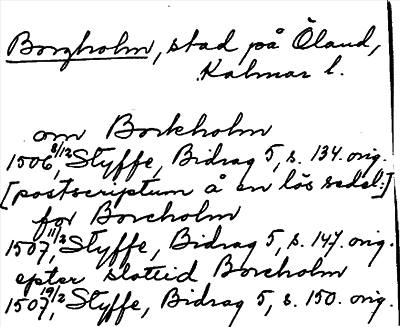 Borgholm, stad på Öland,
Kalmar l.
om Borkholm
1506 8/12, Styffe, Bidrag 5, s. 134. orig.
[postscriptum å en lös sedel:]
for Borcholm
1507 11/2, Styffe, Bidrag 5, s. 147. orig.
epter slottid Borcholm
1507 19/2, Styffe, Bidrag 5, s. 150. orig.